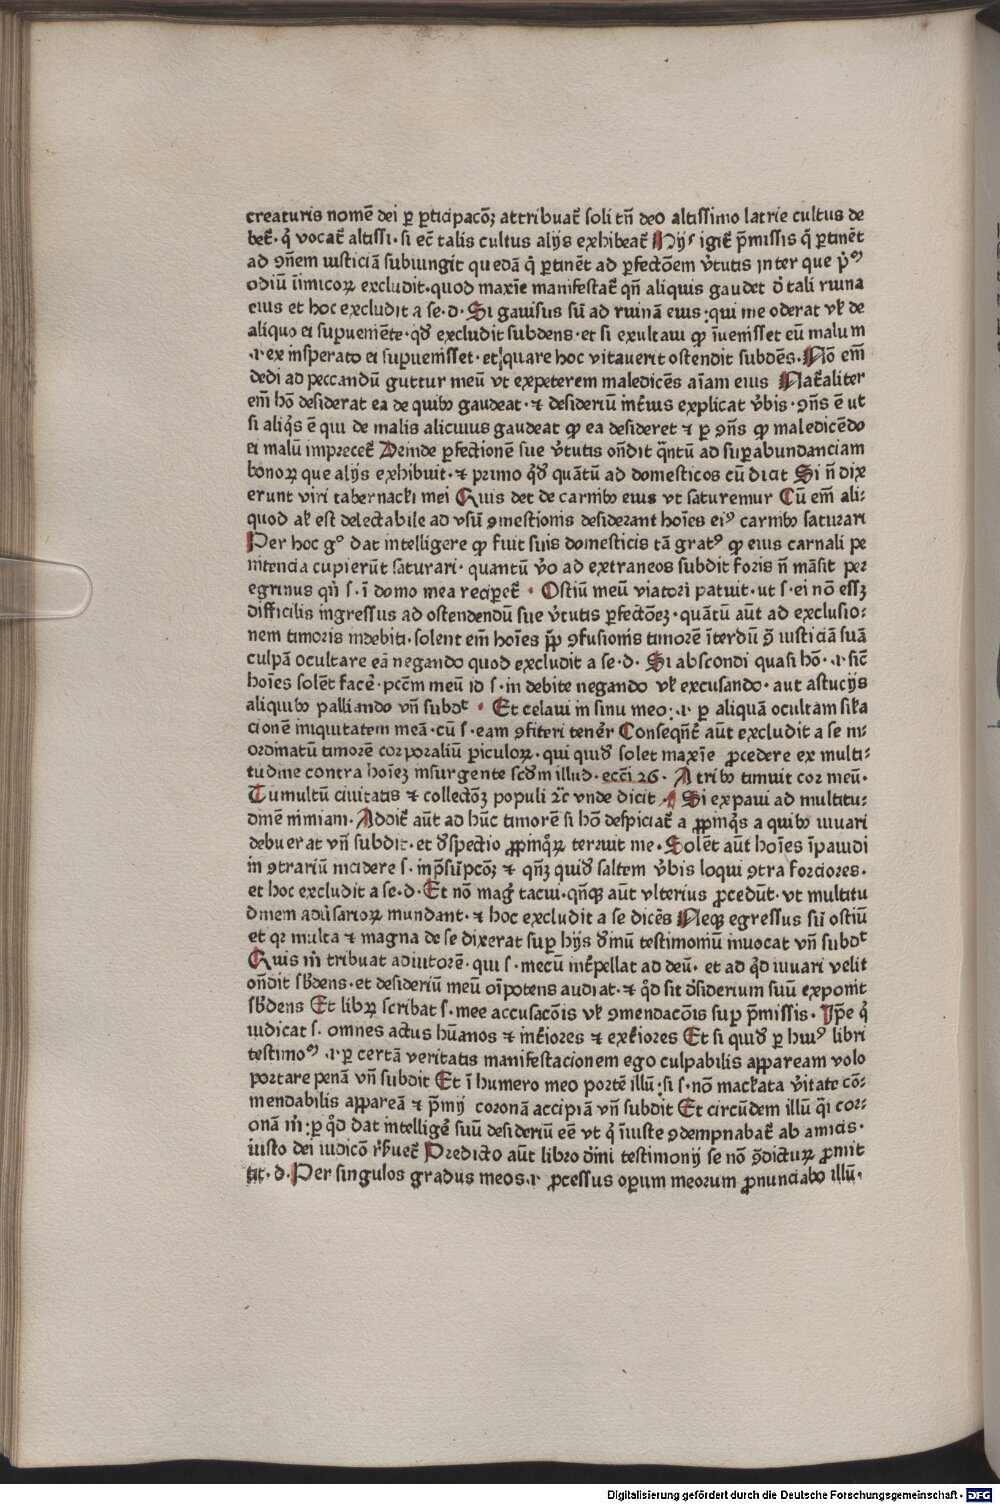 creaturis nomē dei ꝑ ꝑticipacōꝫ attribuat̃ soli tñ deo altissimo latrie cultus de
bet̃· q̇ vocat̃ altissi· si ec̃ talis cultus alijs exhibeat̃ Hijs igit̃ p̃missis q̇ ꝑtinēt
ad ꝯñem iusticiā subiungit quedā q̇ ꝑtinēt ad ꝑfectōem v̓tutis inter que p̓ᵒ
odiū īimicoꝝ excludit· quod maxīe manifestat̃ qñ aliquis gaudet d̓ tali ruina
eius et hoc excludit a se· d· Si gauisus sū ad ruinā eius: qui me oderat vꝉ de
aliquo ei suꝑueniēte· qd̓ excludit subdens· et si exultaui ꝙ īuenisset eū malum
·ı· ex insperato ei suꝑuenisset· et quare hoc vitauerit ostendit subdēs· Nō em̄
dedi ad peccandū guttur meū vt expeterem maledicēs aīam eius Nat̃aliter
em̄ hō desiderat ea de quibꝰ gaudeat· ⁊ desideriū int̃ius explicat v̓bis· ꝯñs ē ut
si aliq̓s ē qui de malis alicuius gaudeat ꝙ ea desideret ⁊ ꝑ ꝯñs ꝙ maledicēdo
ei malū imprecet̃ Deinde ꝑfectionē sue v̓tutis oñdit q̃ntū ad suꝑabundanciam
bonoꝝ que alijs exhibuit· ⁊ primo q̇d̓ quātū ad domesticos cū dicit Si ñ dix
erunt viri tabernacꝉi mei Quis det de carnibꝰ eius vt saturemur Cū em̄ ali⸗
quod aꝉ est delectabile ad vsū ꝯmestionis desiderant hoīes eiꝰ carnibꝰ saturari
Per hoc gᵒ dat intelligere ꝙ fuit suis domesticis tā gratꝰ ꝙ eius carnali pe
nitencia cupierūt saturari· quantū v̓o ad extraneos subdit foris ñ māsit per
egrinus qñ s· ī domo mea reciperet̃ · Ostiū meū viatori patuit· ut s· ei nō essꝫ
difficilis ingressus ad ostendendū sue v̓tutis ꝑfectōeꝫ· quātū aūt ad exclusio⸗
nem timoris indebiti· solent em̄ hoīes ꝓp̄ ꝯfusionis timorē īterdū ꝯ̃ iusticiā suā
culpā ocultare eā negando quod excludit a se· d· Si abscondi quasi hō· ·ı· sic̃
hoīes solēt facē̓· pcc̄m meū id s· in debite negando vꝉ excusando· aut astucijs
aliquibꝰ palliando vñ subdᵗ · Et celaui in sinu meo: ·ı· ꝑ aliquā ocultam siꝉa
cionē iniquitatem meā· cū s· eam ꝯfiteri tener̓ Conseqñt̃ aūt excludit a se in⸗
ordinatū timorē corporaliū ꝑiculoꝝ· qui quid̓ solet maxīe ꝓcedere ex multi⸗
tudine contra hoīeꝫ insurgente scd̓m illud· ecc̃i 26· A tribꝰ timuit cor meū·
Tumultū ciuitatis ⁊ collectōꝫ populi ⁊c̄ vnde dicit · Si expaui ad multitu⸗
dinē nimiam· Addit̃ aūt ad hūc timorē si hō despiciat̃ a ꝓpinq̓s a quibꝰ iuuari
debuerat vñ subdit· et d̓spectio ꝓpinq̓ꝝ terruit me· Solēt aūt hoīes īpauidi
in ꝯtrariū incidere s· in p̃sūpcōꝫ ⁊ qñꝫ quid̓ saltem v̓bis loqui ꝯtra forciores·
et hoc excludit a se· d· Et nō mag̓ tacui· qñqꝫ aūt vlterius ꝓcedūt· vt multitu
dinem adu̓sarioꝝ inuadant· ⁊ hoc excludit a se dicēs Neqꝫ egressus sū ostiū
et qꝛ multa ⁊ magna de se dixerat suꝑ hijs d̓inū testimoniū inuocat vñ subdᵗ
Quis m̓ tribuat adiutorē· qui s· mecū int̃pellat ad deū· et ad q̇d iuuari velit
oñdit sb̓dens· et desideriū meū oīpotens audiat· ⁊ q̇d sit d̓siderium suū exponit
sb̓dens Et libꝝ scribat s· mee accusacōis vꝉ ꝯmendacōis suꝑ p̃missis· Ip̄e q̓
iudicat s· omnes actus hūanos ⁊ int̃iores ⁊ ext̃iores Et si quid̓ ꝑ huiꝰ libri
testimoᵐ ·ı· ꝑ certā veritatis manifestacionem ego culpabilis appaream volo
portare penā vñ subdit Et ī humero meo portē illū: si s· nō macꝉata v̓itate cō⸗
mendabilis appareā ⁊ p̄mij coronā accipiā vñ subdit Et circūdem illū q̃i cor⸗
onā m̓: ꝑ q̇d dat intelligē̓ suū desideriū eē vt q̓ īiuste ꝯdempnabat̃ ab amicis·
iusto dei iudicō r̓b̓uet̃ Predicto aūt libro d̓ini testimonij se nō ꝯ̃dictuꝝ ꝓmit
tit· d· Per singulos gradus meos ·ı· ꝓcessus oꝑum meorum ꝓnunciabo illū·
Digitalisierung gefördert durch die Deutsche Forschungsgemeinschaft - DFG